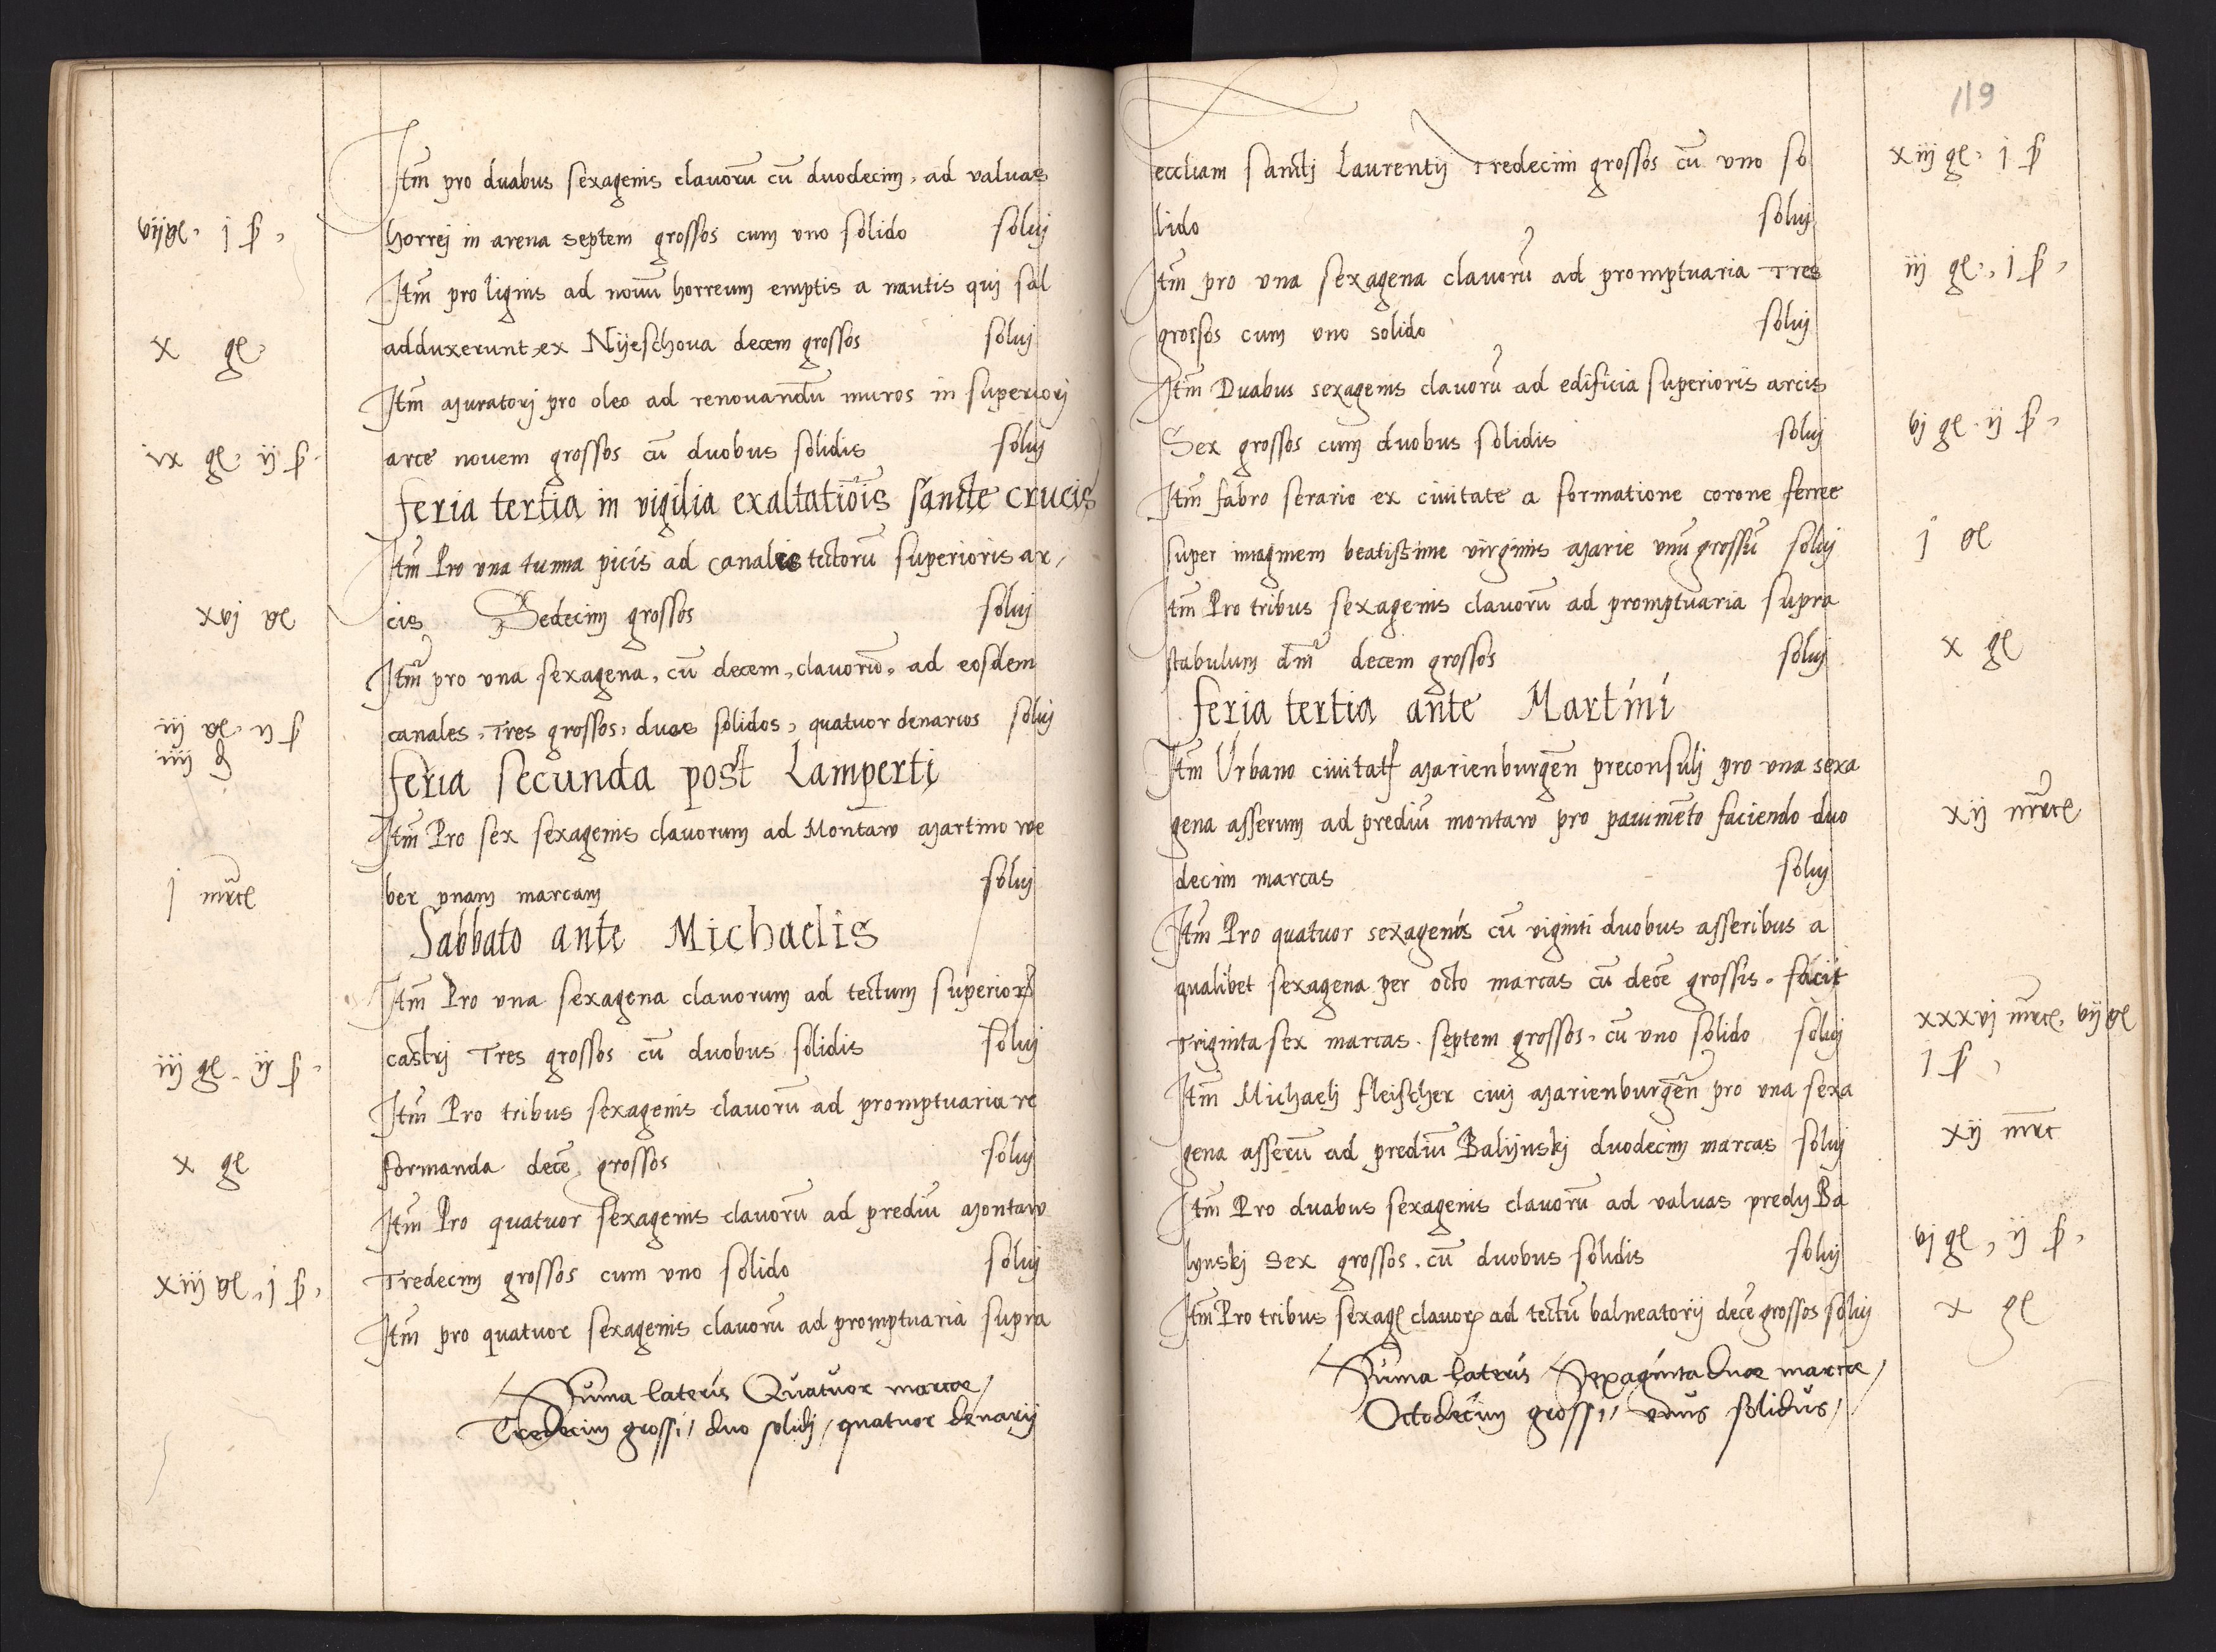 Itm pro duabus sexagenis clauorū cū duodecim, ad valuas
vij gl. j ß, horrej in arena septem grossos cum vno solido soluj
Itm pro lignis ad nouū horreum emptis a nautis quj sal
x gl. adduxerunt ex Nijeschoua decem grossos soluj
Itm Muratorj pro oleo ad renouandū muros in superiorj
ix gl. ij ß. arce nouem grossos cū duobus solidis soluj
feria tertia in vigilia exaltatiōis sancte crucis
Itm Pro vna tunna picis ad canales tectorū superioris ar/
xvj gl cis Sedecim grossos soluj
Itm pro vna sexagena, cū decem, clauorū, ad eosdem
iij gl. ij ß canales, Tres grossos, duos solidos, quatuor denarios soluj
iiij d
feria secunda post Lamperti
Itm Pro sex sexagenis clauorum ad Montaw Martino we
j mrcl ber vnam marcam soluj
Sabbato ante Michaelis
Itm Pro vna sexagena clauorum ad tectum superioris
iij gl. ij ß. castrj Tres grossos cū duobus solidis soluj
Itm Pro tribus sexagenis clauorū ad promptuaria re
x gl formanda decē grossos soluj
Itm Pro quatuor sexagenis clauorū ad prediū Montaw
xiij gl, j ß, Tredecim grossos cum vno solido soluj
Itm pro quatuor sexagenis clauorū ad promptuaria supra
Suma lateris Quatuor marcae/
Tredecim grossi/ duo solidj/ quatuor denarij
119
eccliam sanctj Laurentij Tredecim grossos cū vno so xiij gl. j ß
lido soluj
Itm pro vna sexagena clauorū ad promptuaria Tres iij gl., j ß,
grossos cum vno solido soluj
Itm Duabus sexagenis clauorū ad edificia superioris arcis
Sex grossos cum duobus solidis soluj vj gl. ij ß,
Itm fabro serario ex ciuitate a formatione corone ferree
super imaginem beatissime virginis Marie vnū grossū soluj j gl
Itm Pro tribus sexagenis clauorū ad promptuaria supra
stabulum dm̄ decem grossos soluj x gl
feria tertia ante Martini
Itm Vrbano ciuitatꝭ Marienburgen̄ preconsulj pro vna sexa
gena asserum ad prediū montaw pro pauimēto faciendo duo xij mrcl
decim marcas soluj
Itm Pro quatuor sexagenis cū viginti duobus asseribus a
qualibet sexagena per octo marcas cū decē grossis. facit
Triginta sex marcas. septem grossos. cū vno solido soluj xxxvj mrcl. vij gl
j ß,
Itm Michaelj fleischer ciuj Marienburgen̄ pro vna sexa
gena asserū ad prediū Balijnskj duodecim marcas soluj xij mrc
Itm Pro duabus sexagenis clauorū ad valuas predij Ba
lynskj Sex grossos. cū duobus solidis soluj vj gl, ij ß,
Itm Pro tribus sexagl clauoꝝ ad tectū balneatorij decē grossos soluj x gl
Suma lateris Sexaginta duae marcae/
Octodecim grossi/ vnus solidus/